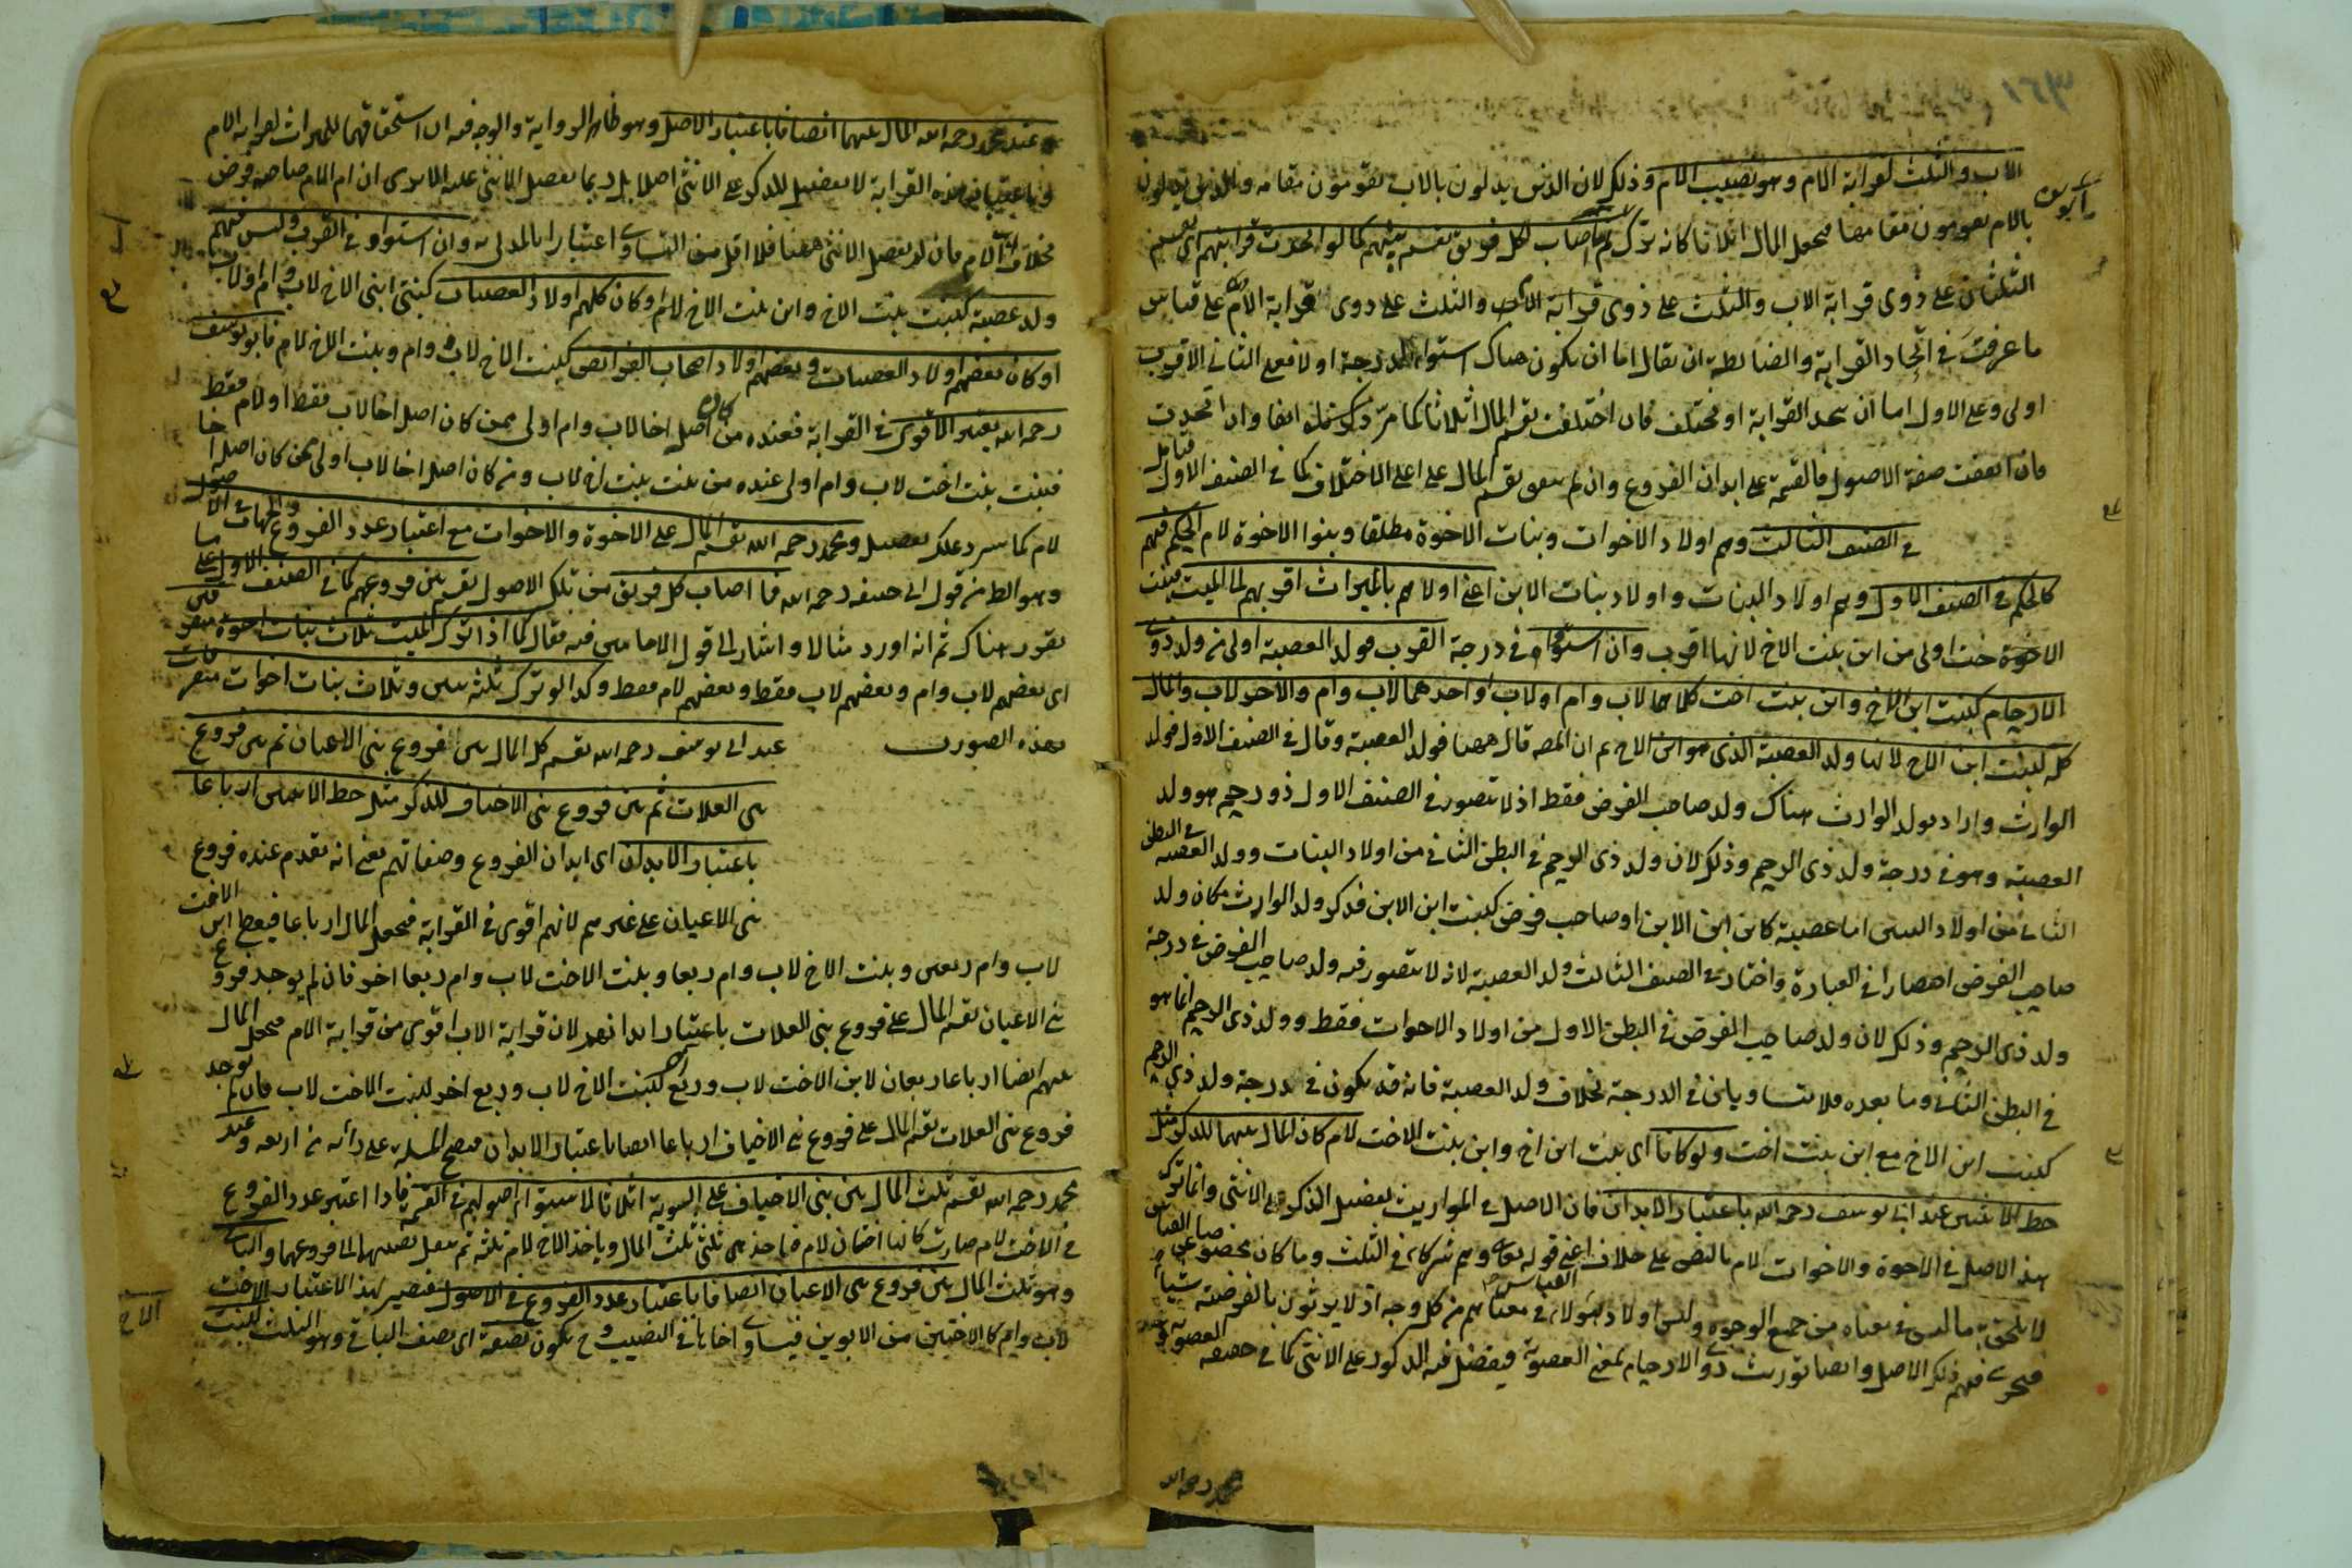 ١٦٣
الاب والثلث لقرابة الام وهو نصيب الام وذلك لان الذين يدلون بالاب يقومون مقامه والذين يدلون
بالام يقومون مقامها فيجعل المال اثلاثا كانه ترك ابوين ثم ما اصاب لكل فريق يقسم بينهم كما لو اتحدت قرابتهم اى يقسم
الثلثان على ذوى قرابة الاب والثلث على ذوى قرابة الاب والثلث على ذوى قرابة الام على قياس
ما عرفت فى اتحاد القرابة والضابطة ان يقال اما ان يكون هناك استواء الدرجة اولا فعلى الثانى الاقرب
اولى وعلى الاول اما ان يتحد القرابة او تختلف فان اختلفت يقسم المال اثلاثا كما مر ذكر آنفا وان اتحدت
فان اتفقت صفة الاصول فالقسمة على ابدان الفروع وان لم يتفق يقسم المال على اعلى الاختلاف كما فى الصنف الاول فتأمل
فى الصنف الثالث وهم اولاد الاخوات وبنات الاخوة مطلقا وبنوا الاخوة لام الحكم فيهم
كالحكم فى الصنف الاول وهم اولاد البنات واولاد بنات الابن اعنى اولاهم بالميراث اقربهم الى الميت فبنت
الاخوة خت اولى من ابن بنت الاخ لانها اقرب وان استووا فى درجة القرب فولد العصبة اولى من ولد ذوى
الارحام كبنت ابن الاخ وابن بنت اخت كلاهما لاب وام اولاب او احدهما لاب وام والاخر لاب والمال
كله لبنت ابن الاخ لانها ولد العصبة الذى هو ابن الاخ ثم ان المص قال ههنا فولد العصبة وقال فى الصنف الاول فولد
الوارث واراد بولد الوارث هناك ولد صاحب الفرض فقط اذ لا يتصور فى الصنف الاول ذو رحم هو ولد
العصبة وهو فى درجة ولد ذى الرحم وذلك لان ولد ذى الرحم فى البطن الثانى من اولاد البنات وولد العصبة فى البطن
الثانى من اولاد البنين اما عصبة كابن ابن الابن او صاحب فرض كبنت ابن الابن فذكر ولد الوارث مكان ولد
صاحب الفرض اختصارا فى العبارة واختار فى الصنف الثالث ولد العصبة لانه لا يتصور فيه ولد صاحب الفرض فى درجة
ولد ذى الرحم وذلك لان ولد صاحب الفرض فى البطن الاول من اولاد الاخوات فقط وولد ذى الرحم انما هو
فى البطن الثانى وما بعده فلا يتساويان فى الدرجة بخلاف ولد العصبة فانه قد يكون فى درجة ولد ذى الرحم
كبنت ابن الاخ مع ابن بنت اخت ولو كانا اى بنت ابن اخ وابن بنت الاخت لام كان المال بينهما للذكر مثل
حظ الانثيين عند ابى يوسف رحمه الله باعتبار الابدان فان الاصل فى المواريث تفضيل الذكر على الانثى وانما ترك
هذا الاصل فى الاخوة والاخوات لام بالنص على خلاف اعنى قوله تعالى وهم شركاء فى الثلث وما كان مخصوصا عن القياس
لا يلحق به ما ليس فى معناه من جميع الوجوه وليس اولاد هؤلاء فى معناهم من كل وجه اذ لا يرثون بالفرضية شيئا
فيجرى فيهم ذلك الاصل وايضا توريث ذوى الارحام بمعنى العصوبة فيفضل فيه الذكور على الانثى كما فى حقيقة العصوبة
محمد رحمه الله
عند محمد رحمه الله المال بينهما انصافا باعتبار الاصل وهو ظاهر الرواية والوجه فيه ان استحقاقهما للميراث لقرابة الام
وباعتبار هذه القرابة لا تفضيل للذكر على الانثى اصلا بل ربما تفضل الانثى عليه الا يرى ان ام الام صاحبة فرض
بخلاف اب الام فان لم تفضل الانثى ههنا فلا اقل من التساوى اعتبارا بالمدلى به وان استووا فى القرب وليس فيهم
ولد عصبة كبنت بنت الاخ وابن بنت الاخ لام او كان كلهم اولاد العصبات كبنتى ابنى الاخ لاب وام اولاب
او كان بعضهم اولاد العصبات وبعضهم اولاد اصحاب الفرائض كبنت الاخ لاب وام وبنت الاخ لام فابو يوسف
رحمه الله يعتبر الاقوى فى القرابة فعنده من كان اصله اخا لاب وام اولى ممن كان اصله اخا لاب فقط او لام فقط
فبنت بنت اخت لاب وام اولى عنده من بنت بنت اخ لاب ومن كان اصله اخا لاب اولى ممن كان اصله اخا
لام كما سيرد عليك تفصيله ومحمد رحمه الله يقسم المال على الاخوة والاخوات مع اعتبار عدد الفروع والجهات فى الاصول
وهو الظ من قول ابى حنيفة رحمه الله فما اصاب كل فريق من تلك الاصول يقسم بين فروعهم كما فى الصنف الاول على ما
تقرر هناك ثم انه اورد مثالا واشار الى قول الامامين فيه فقال كما اذا ترك الميت ثلاث بنات اخوة متفرقين
اى بعضهم لاب وام وبعضهم لاب فقط وبعضهم لام فقط وكذا لو ترك ثلثة بنين وثلاث بنات اخوات متفرقات
بهذه الصورت
عند ابى يوسف رحمه الله يقسم كل المال بين فروع بنى الاعيان ثم بين فروع
بنى العلات ثم بين فروع بنى الاخياف للذكر مثل حظ الانثيين ارباعا
باعتبار الابدان اى ابدان الفروع وصفاتهم يعنى انه تقدم عنده فروع
بنى الاعيان على غيرهم لانهم اقوى فى القرابة فيجعل المال ارباعا فيعطى ابن الاخت
لاب وام ربعين وبنت الاخ لاب وام ربعا وبنت الاخت لاب وام ربعا اخر فان لم يوجد فروع
بنى الاعيان يقسم المال على فروع بنى العلات باعتبار ابدانهم لان قرابة الاب اقوى من قرابة الام فيجعل المال
بينهم ايضا ارباعا ربعان لابن الاخت لاب وربع لبنت الاخ لاب وربع اخر لبنت الاخت لاب فان لم يوجد
فروع بنى العلات يقسم المال على فروع بنى الاخياف ارباعا ايضا باعتبار الابدان فيصح المسئلة على رأيه من اربعة وعند
محمد رحمه الله يقسم ثلث المال بين بنى الاخياف على السوية اثلاثا لاستواء اصولهم فى القسمة فاذا اعتبر عدد الفروع
فى الاخت لام صارت كانها اختان لام فياخذ هى ثلثى ثلث المال وياخذ الاخ لام ثلثه ثم ينقل نصيبهما الى فروعهما والباقى
وهو ثلثا المال بين فروع بنى الاعيان انصافا باعتبار عدد الفروع فى الاصول فيصير بهذا الاعتبار الاخت
لاب وام كالاختين من الابوين فيساوى اخاها فى النصيب وح يكون نصفه اى نصف الباقى وهو الثلث لبنت
الاخ